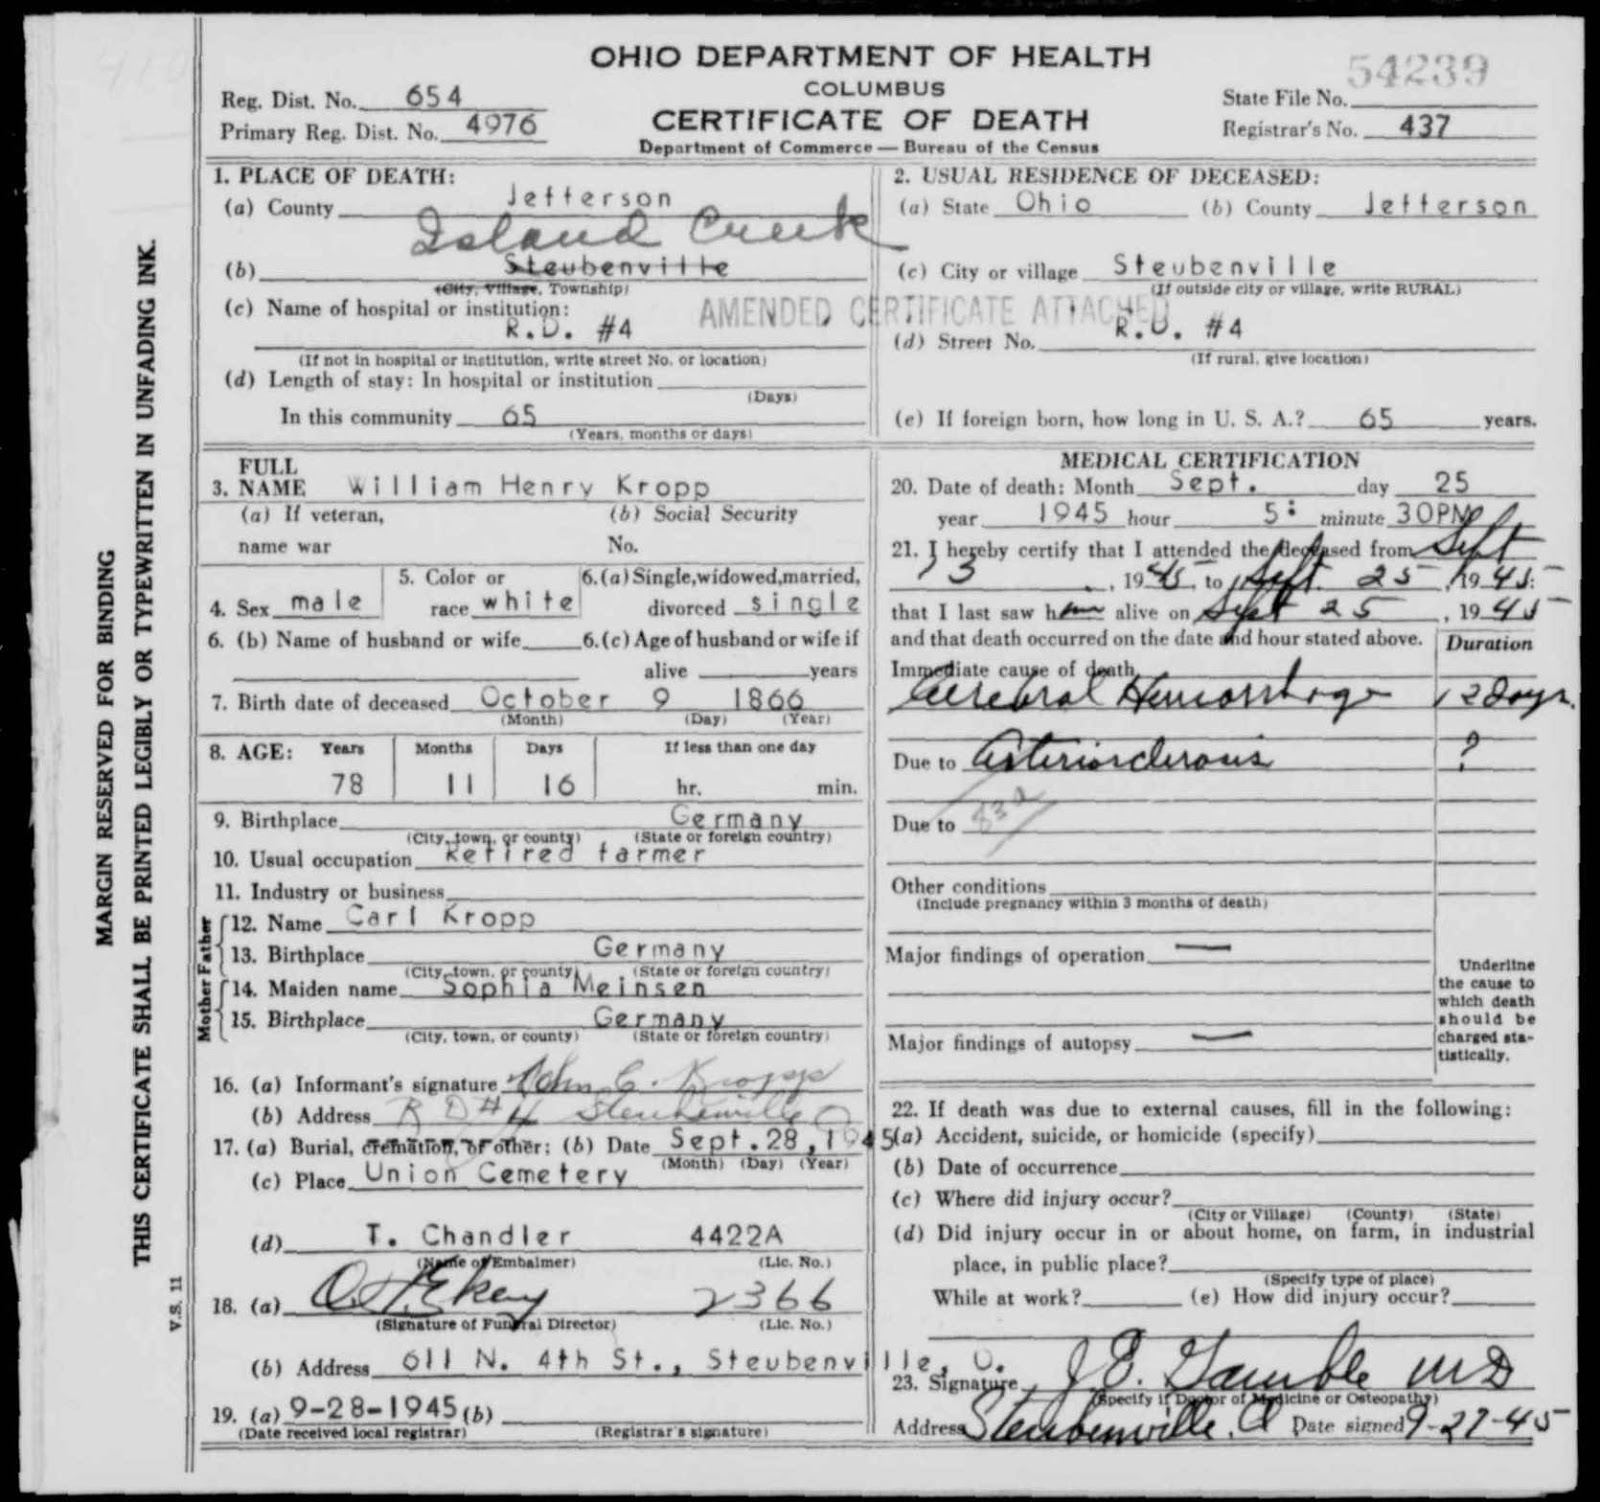 54239
OHIO DEPARTMENT OF HEALTH
COLUMBUS
CERTIFICATE OF DEATH
Department of Commerce — Bureau of the Census
Reg. Dist. No. 654
Primary Reg. Dist. No. 4976
State File No.
Registrar's No. 437
MARGIN RESERVED FOR BINDING
THIS CERTIFICATE SHALL BE PRINTED LEGIBLY OR TYPEWRITTEN IN UNFADING INK.
V.S. 11
1. PLACE OF DEATH:
(a) County Jefferson
Island Creek
(b) Steubenville
(City, Village, Township)
(c) Name of hospital or institution:
R.D. #4
(If not in hospital or institution, write street No. or location)
(d) Length of stay: In hospital or institution
(Days)
In this community 65
(Years, months or days)
AMENDED CERTIFICATE ATTACHED
2. USUAL RESIDENCE OF DECEASED:
(a) State Ohio (b) County Jefferson
(c) City or village Steubenville
(If outside city or village, write RURAL)
R.D. #4
(d) Street No.
(If rural, give location)
(e) If foreign born, how long in U. S. A.? 65 years.
FULL
3. NAME William Henry Kropp
(a) If veteran, (b) Social Security
name war No.
4. Sex male 5. Color or race white 6. (a) Single, widowed, married, divorced single
6. (b) Name of husband or wife 6. (c) Age of husband or wife if
alive years
7. Birth date of deceased October 9 1866
(Month) (Day) (Year)
8. AGE: Years Months Days If less than one day
78 11 16 hr. min.
9. Birthplace Germany
(City, town, or county) (State or foreign country)
10. Usual occupation Retired farmer
11. Industry or business
Father
12. Name Carl Kropp
13. Birthplace Germany
(City, town, or county) (State or foreign country)
Mother
14. Maiden name Sophia Meinsen
15. Birthplace Germany
(City, town, or county) (State or foreign country)
16. (a) Informant's signature John C. Kropp
(b) Address R D #4 Steubenville O
17. (a) Burial, cremation, or other; (b) Date Sept. 28, 1945
(Month) (Day) (Year)
(c) Place Union Cemetery
(d) T. Chandler 4422A
(Name of Embalmer) (Lic. No.)
18. (a) 2366
(Signature of Funeral Director) (Lic. No.)
(b) Address 611 N. 4th St., Steubenville, O.
19. (a) 9-28-1945 (b)
(Date received local registrar) (Registrar's signature)
MEDICAL CERTIFICATION
20. Date of death: Month Sept. day 25
year 1945 hour 5: minute 30PM
21. I hereby certify that I attended the deceased from Sept
13, 1945 to Sept. 25, 1945:
that I last saw him alive on Sept 25, 1945
and that death occurred on the date and hour stated above.
Duration
Immediate cause of death
Cerebral Hemorrhage 12 days.
Due to Arteriosclerosis ?
Due to 83a
Other conditions
(Include pregnancy within 3 months of death)
Major findings of operation —
Major findings of autopsy —
Underline
the cause to
which death
should be
charged sta-
tistically.
22. If death was due to external causes, fill in the following:
(a) Accident, suicide, or homicide (specify)
(b) Date of occurrence
(c) Where did injury occur?
(City or Village) (County) (State)
(d) Did injury occur in or about home, on farm, in industrial
place, in public place?
(Specify type of place)
While at work? (e) How did injury occur?
23. Signature J E. Gamble MD
(Specify if Doctor of Medicine or Osteopathy)
Address Steubenville, O Date signed 9-27-45